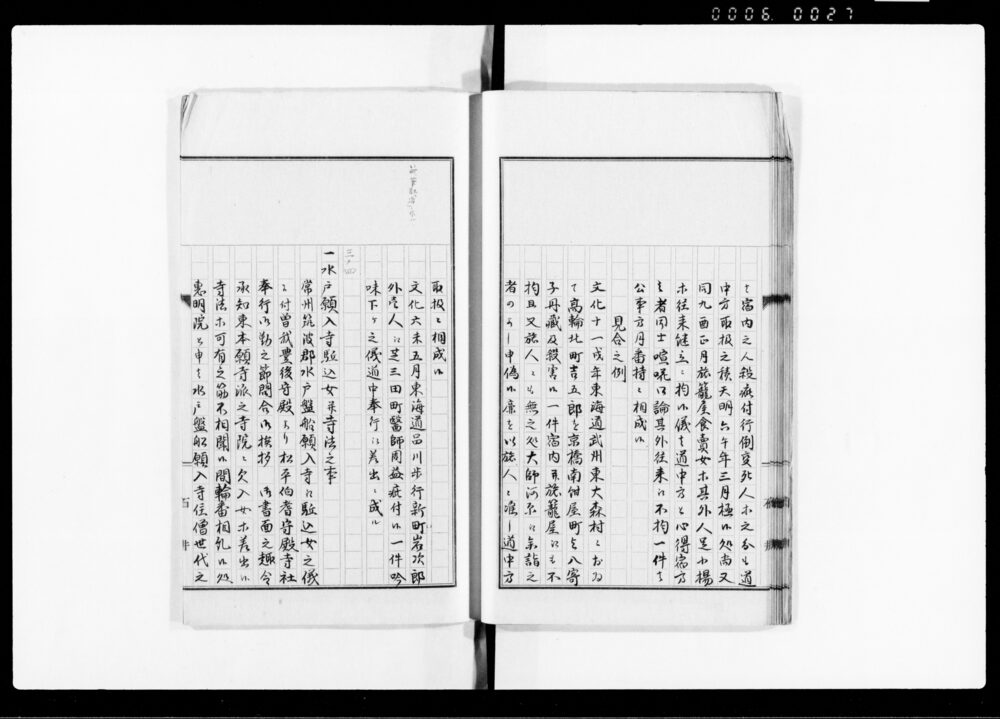 0006. 0027
ミ宿内之人殺疵付行倒変死人ホ之分も道
中方取扱之積天明六午年三月極候処尚又
同九酉正月旅籠屋食賣女ホ其外人足小揚
ホ往来継立ニ拘候儀を道中方と心得宿方
之者同士喧嘩口論其外往来江不拘一件ハ
公事方月番持ニ相成候
見合之例
文化十一戌年東海道武州東大森村ニおゐ
て高輪北町吉五郎を京橋南紺屋町与八寄
子丹蔵及殺害候一件宿内并旅籠屋江も不
拘且又旅人ニも無之処大師河原江参詣之
者のよし申偽候廉を以旅人ニ准し道中方
取扱ニ相成候
文化六未五月東海道品川歩行新町岩次郎
外壱人江芝三田町醫師周益疵付候一件吟
味下ケ之儀道中奉行江差出ニ成ル
三ノ四
一水戸願入寺駈込女并寺法之事
常州筑波郡水戸盤船願入寺江駈込女之儀
ニ付曽我豊後守殿より松平伯耆守殿寺社
奉行御勤之節問合御挨拶 御書面之趣令
承知東本願寺派之寺院ニ欠入女ホ差出候
寺法ホ可有之筋不相聞候間輪番相糺候処
惠明院与申も水戸盤船願入寺住僧世代之
百